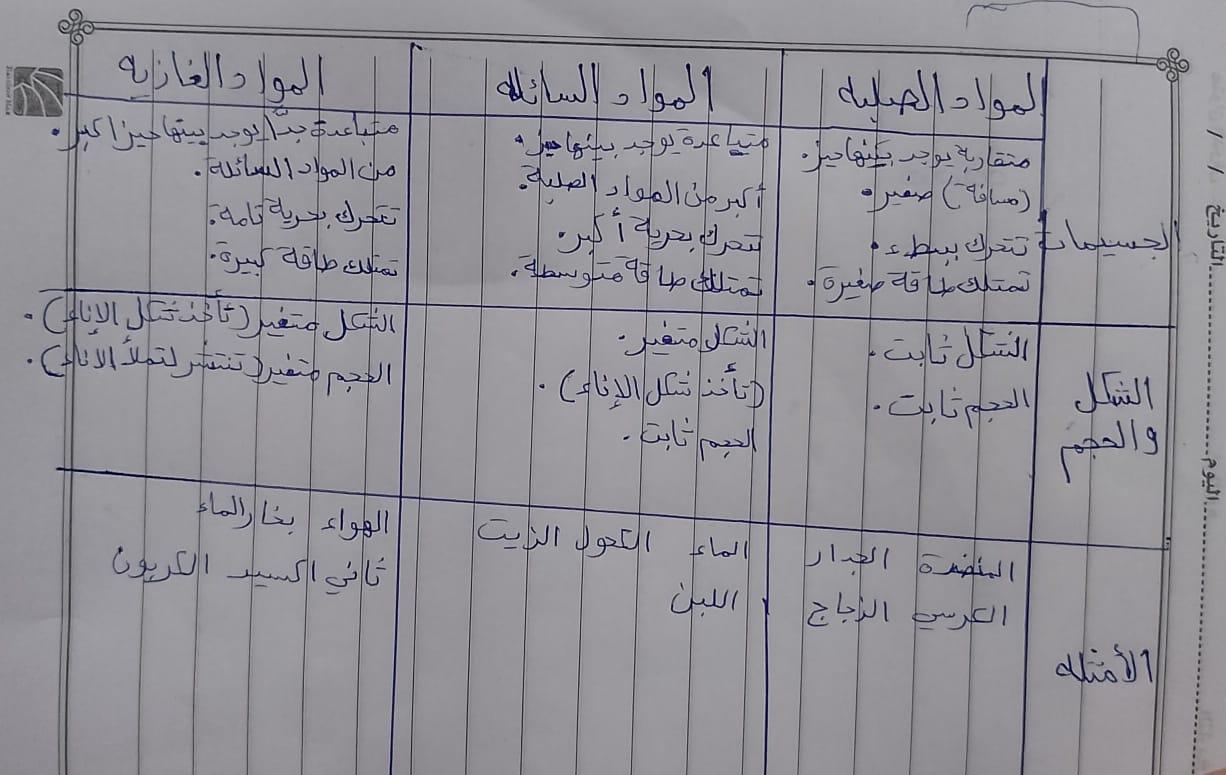 المواد الصلبه
المواد السائله
المواد الغازيه
الجسيمات
متقاربة يوجد بينها حيز.
(مسافة) صغير.
تتحرك ببطء.
تمتلك طاقة صغيرة.
متباعدة يوجد بينها حيز.
أكبر من المواد الصلبة.
تتحرك بحرية أكبر.
تمتلك طاقة متوسطة.
متباعدة جداً يوجد بينها حيزا كبر.
من المواد السائلة.
تتحرك بحرية تامة.
تمتلك طاقة كبيرة.
الشكل
والحجم
الشكل ثابت.
الحجم ثابت.
الشكل متغير.
(تأخذ شكل الإناء).
الحجم ثابت.
الشكل متغير (تأخذ شكل الإناء).
الحجم متغير (تنتشر لتملأ الاناء).
الأمثله
المنضدة الجدار
الكرسي الزجاج
الماء الكحول الزيت
اللبن
الهواء بخار الماء
ثاني اكسيد الكربون
اليوم
التاريخ / /